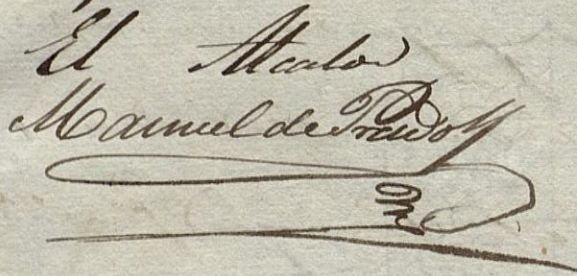 El Alcalde
Manuel de Prado